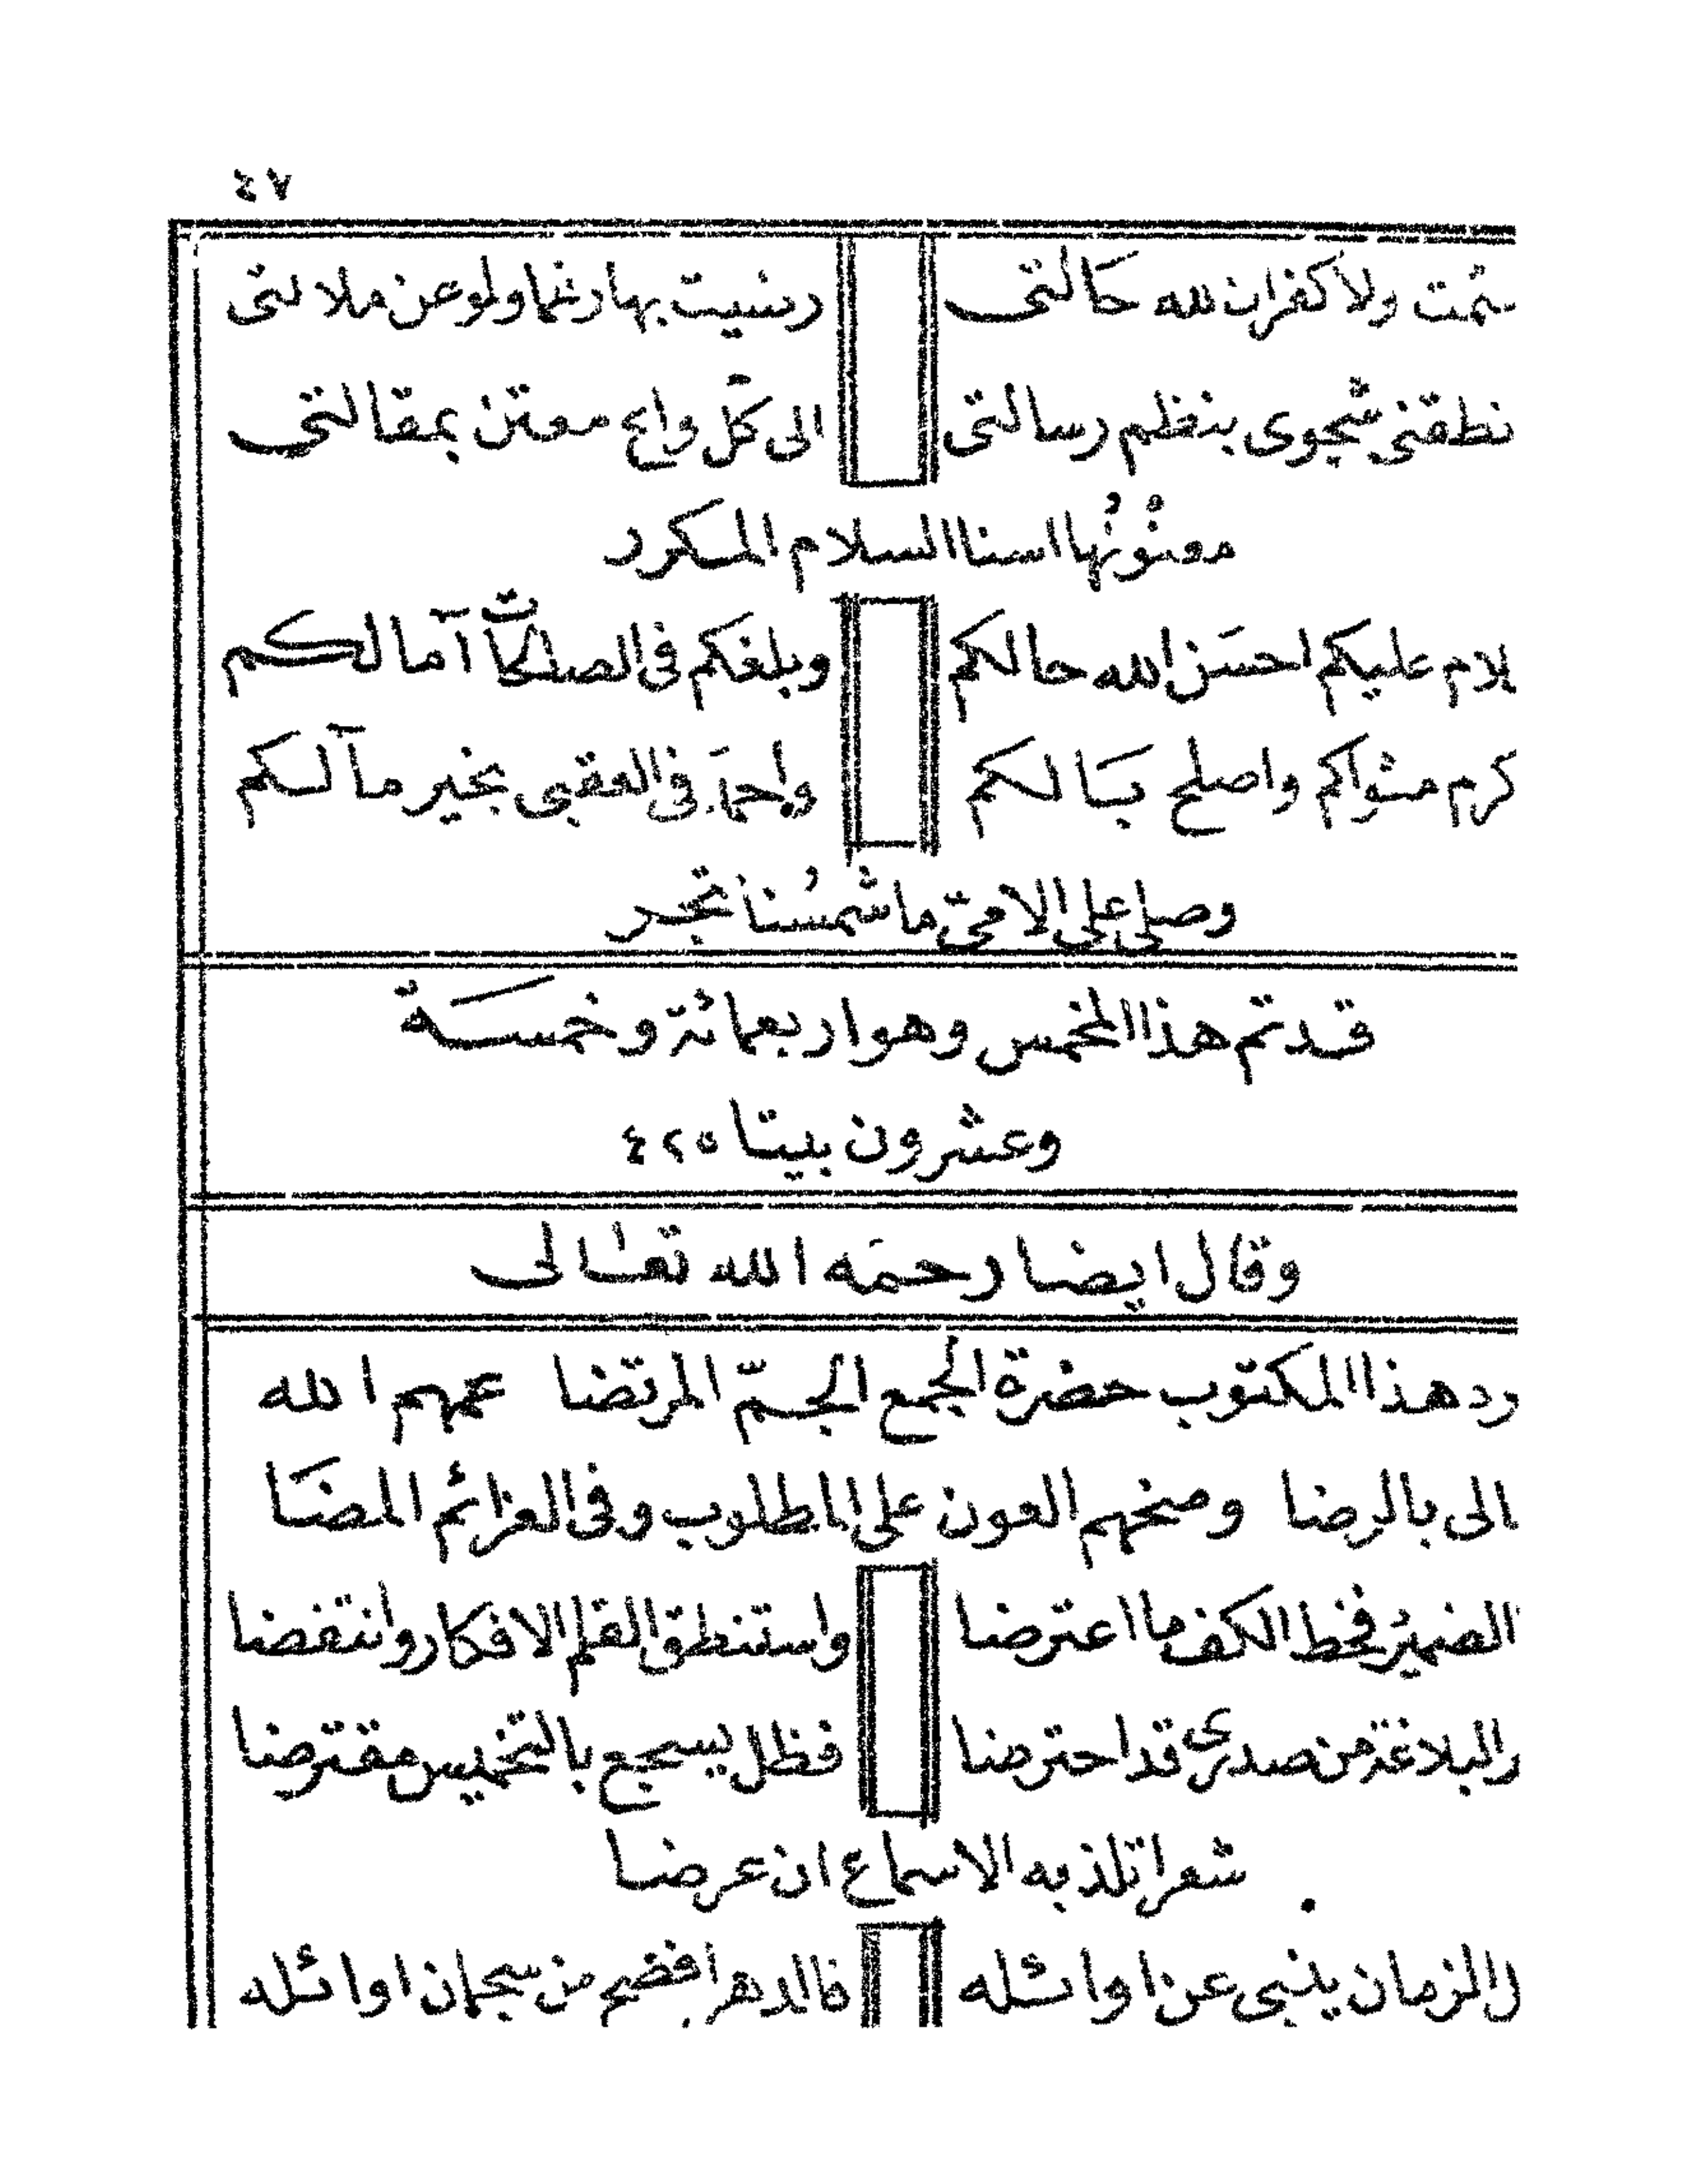 ٤٧
ولا كفران لله حالتى ربيت بها رغما ولو عن ملالتى
نطقنى شجوى بنظم رسالتى الى كل واع معتن بمقالتى
معنونها اسنا السلام المكرر
عليكم احسن الله حالكم وبلغكم فى الصالحات آمالكم
كرم مثواكم واصلح بالكم فى العقبى بخير مآلكم
وصلى على الامىّ ما شمسنا تجر
قد تم هذا المخمس وهو اربعمائة وخمسة
وعشرون بيتا ٤٢٥
وقال ايضا رحمه الله تعالى
هذا المكتوب حضرة الجمع الجمّ المرتضا عمهم الله
بالرضا ومنحهم العون على المطلوب وفى العزائم المضا
الضمير فخط الكف ما اعترضا واستنطق القلم الافكار وانتفضا
البلاغة من صدرى قد احترضا فظل يسجع بالتخميس مقترضا
شعرا تلذ به الاسماع ان عرضا
الزمان ينبى عن اوائله فالدهر افضح من سحبان اوائله